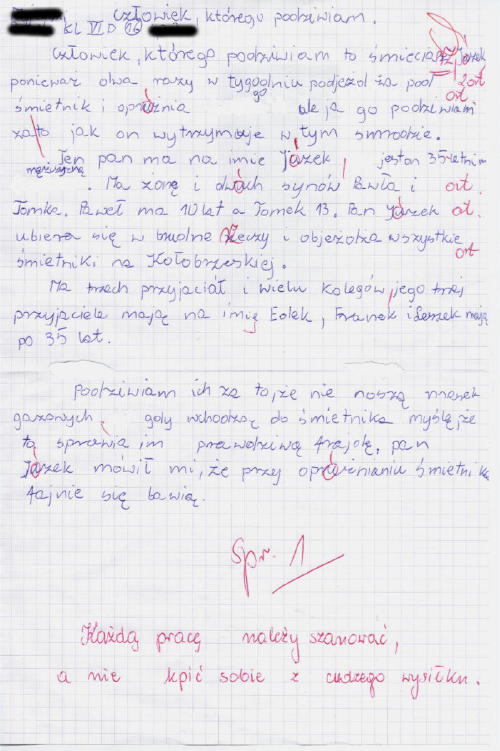 Człowiek, którego podziwiam.
kl VI D
Człowiek, którego podziwiam to śmieciarz Jazek
ponieważ dwa razy w tygodniu podjeżdża pod 2ort
śmietnik i oprużnia go ale ja go podziwiam ort
za to jak on wytrzymuje w tym smrodzie.
Ten pan ma na imie Jazek jest on 35 letnim
mężczyzną. Ma żonę i dwóch synów Pawła i ort.
Tomka. Paweł ma 10 lat a Tomek 13. Pan Jazek ort.
ubiera się w brudne rzeczy i objeżdża wszystkie
śmietniki na Kołobrzeskiej. ort
Ma trzech przyjaciół i wielu kolegów, jego trzej
przyjaciele mają na imię Bolek, Franek i Leszek mają
po 35 lat.
Podziwiam ich za to, że nie noszą masek
gazowych, gdy wchodzą do śmietnika myślę, że
to sprawia im prawdziwą frajdę, pan
Jazek mówił mi, że przy oprużnianiu śmietnika
fajnie się bawią.
Spr. 1
Każdą pracę należy szanować,
a nie kpić sobie z cudzego wysiłku.